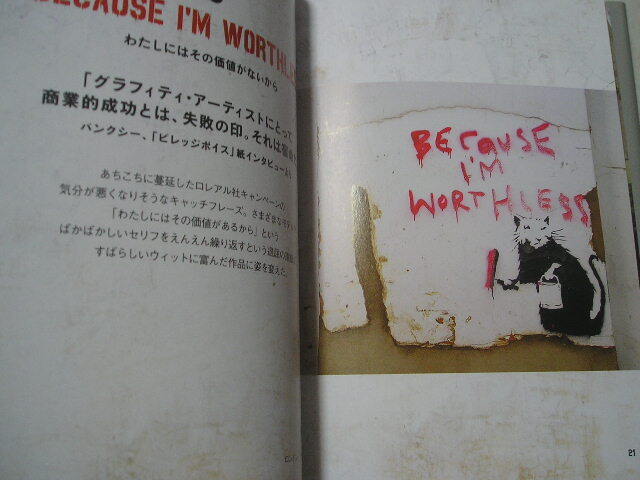 BECAUSE I'M WORTHLESS
わたしにはその価値がないから
「グラフィティ・アーティストにとって
商業的成功とは、失敗の印。それは
バンクシー、「ビレッジボイス」紙インタビューより
あちこちに蔓延したロレアル社キャンペーンの
気分が悪くなりそうなキャッチフレーズ。さまざまな
「わたしにはその価値があるから」という
ばかばかしいセリフをえんえん繰り返すという
すばらしいウィットに富んだ作品に姿を変えた。
BECAUSE
I'M
WORTHLESS
21